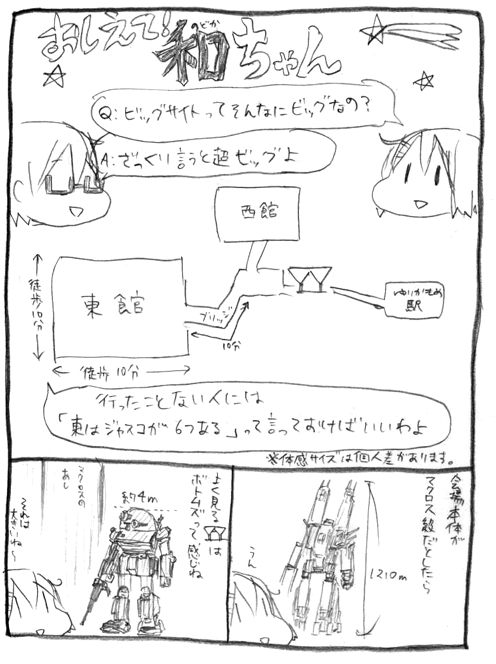 おしえて!和ちゃん
のどか
Q:ビッグサイトってそんなにビッグなの?
A:ざっくり言うと超ビッグよ
西館
東館
徒歩10分
徒歩10分
ブリッジ
10分
ゆりかもめ
駅
行ったことない人には
「東はジャスコが6つある」って言っておけばいいわよ
※体感サイズは個人差があります。
会場本体が
マクロス級だとしたら
1210m
うん
よく見る
は
ボトムズって感じね
約4m
マクロスの
あし
それは
大きいね〜